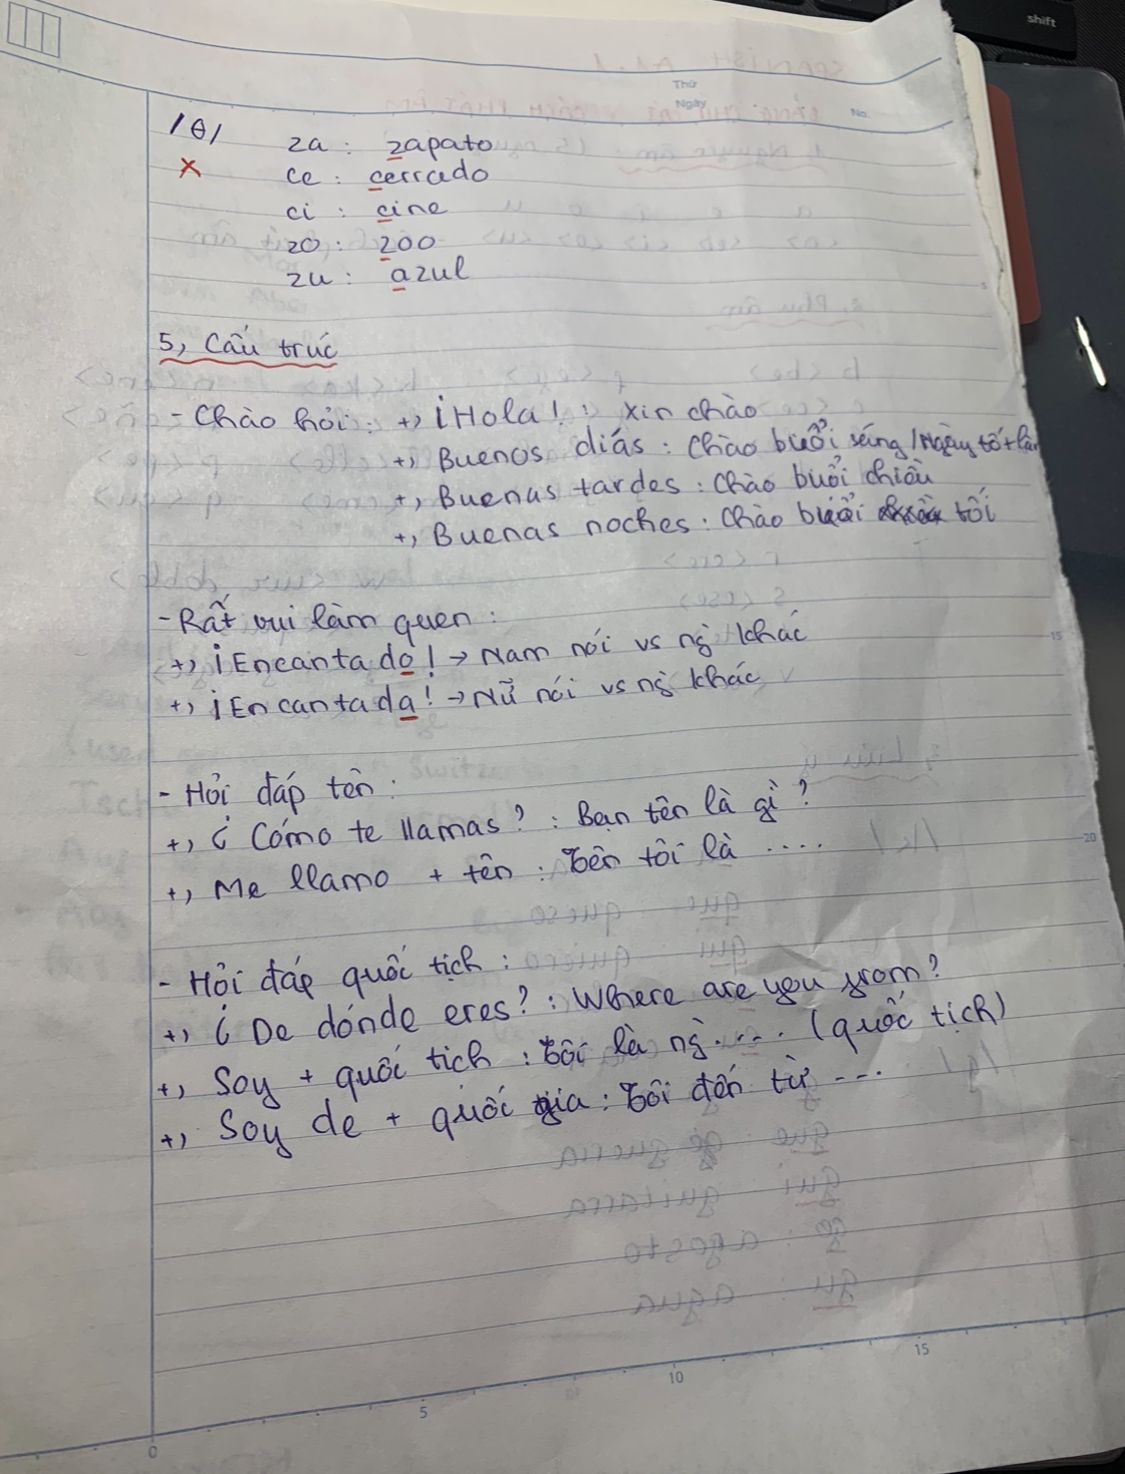 shift
Thứ
Ngày
No.
/θ/ za : zapato
x ce : cerrado
ci : cine
zo : zoo
zu : azul
5, Cấu trúc
- Chào hỏi : +, ¡Hola! : xin chào
+, Buenos diás : Chào buổi sáng / Ngày tốt lành
+, Buenas tardes : Chào buổi chiều
+, Buenas noches : Chào buổi tối
- Rất vui làm quen :
+, ¡Encantado! → Nam nói vs ng` khác
+, ¡Encantada! → Nữ nói vs ng` khác
- Hỏi đáp tên :
+, ¿ Cómo te llamas? : Bạn tên là gì ?
+, Me llamo + tên : Tên tôi là ....
- Hỏi đáp quốc tịch :
+, ¿ De dónde eres? : Where are you from?
+, Soy + quốc tịch : Tôi là ng` .... (quốc tịch)
+, Soy de + quốc gia : Tôi đến từ ...
5
15
20
0 5 10 15